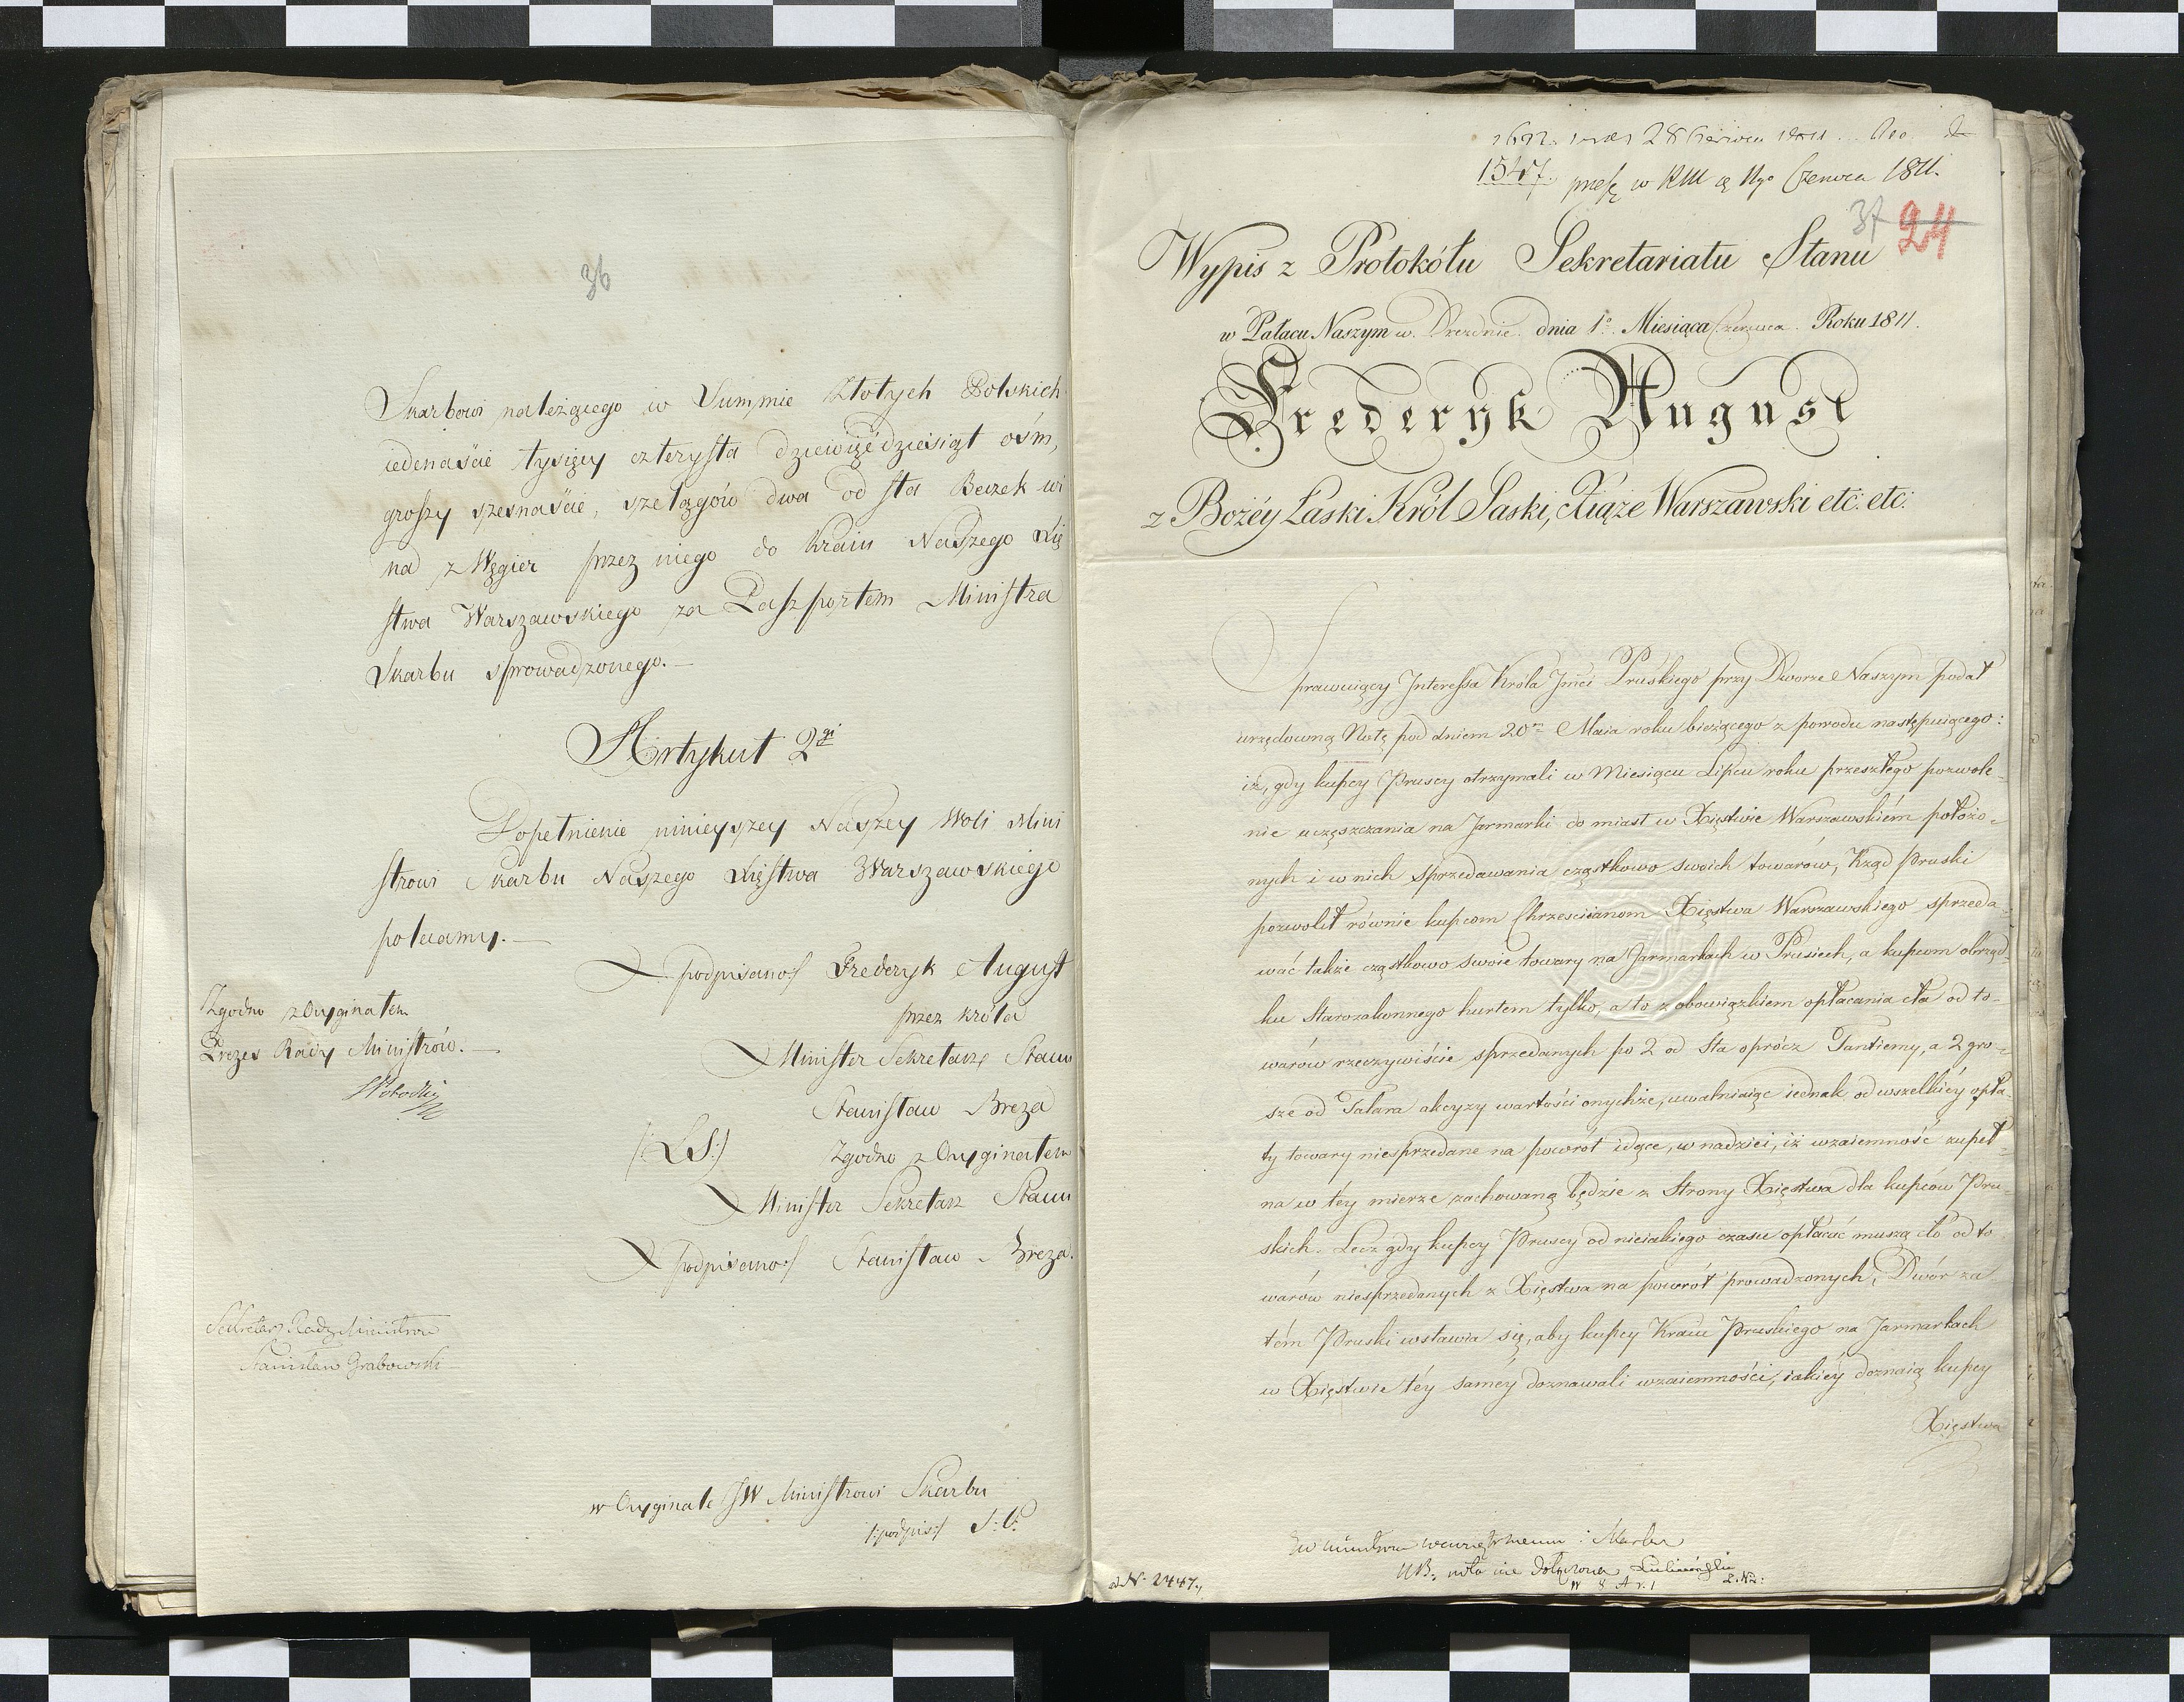 36
Skarbowi należącego w Summie Złotych Polskich
iedenaście tysięcy czterysta dziewięćdziesiąt ośm,
groszy szesnaście, szelągów dwa od sta Beczek wi
na z Węgier przez niego do Kraiu Naszego Xię
stwa Warszawskiego za Paszportem Ministra
Skarbu sprowadzonego. —
Artykuł 2gi
Dopełnienie ninieyszey Naszey Woli Mini
strowi Skarbu Naszego Xięstwa Warszawskiego
polecamy. —
podpisano/ Frederyk August
przez Króla
Minister Sekretarz Stanu
Stanisław Breza
/:LS:/ Zgodno z Oryginałem
Minister Sekretarz Stanu
podpisano:/ Stanisław Breza.
Zgodno z Oryginałem
Prezes Rady Ministrów. —
Sekretarz Rady Ministrów
Stanisław Grabowski
w Oryginale JW Ministrowi Skarbu
/:podpis:/
1547. w czerwca 1811.
37 24
Wypis z Protokółu Sekretariatu Stanu
w Pałacu Naszym w Dreznie dnia 1o. Miesiąca Czerwca. Roku 1811.
Frederyk August
z Bożéy Łaski Król Saski, Xiąże Warszawski etc: etc:
Sprawuiący Interessa Króla Jmci Pruskiego przy Dworze Naszym podał
urzędowną Notę pod dniem 20m Maia roku bieżącego z powodu następuiącego:
iż, gdy kupcy Pruscy otrzymali w Miesiącu Lipcu roku przeszłego pozwole-
nie uczęszczania na Jarmarki do miast w Xięstwie Warszawskiém położo-
nych i w nich sprzedawania cząstkowo swoich towarów, Rząd Pruski
pozwolił równie kupcom Chrześciianom Xięstwa Warszawskiego sprzeda-
wać także cząstkowo swoie towary na Jarmarkach w Prusiech, a kupcom obrząd-
ku Starozakonnego hurtem tylko, a to z obowiązkiem opłacania cła od to-
warów rzeczywiście sprzedanych po 2 od Sta oprócz Tantiemy, a 2 gro-
sze od Talara akcyzy wartości onychże, uwalniaiąc iednak od wszelkiéy opła-
ty towary niesprzedane na powrót idące, w nadziei, iż wzaiemność zupeł-
na w téy mierze zachowaną będzie z Strony Xięstwa dla kupców Pru-
skich. Lecz gdy kupcy Pruscy od nieiakiego czasu opłacać muszą cło od to-
warów niesprzedanych z Xięstwa na powrót prowadzonych, Dwór za-
tém Pruski wstawia się, aby kupcy Kraiu Pruskiego na Jarmarkach
w Xięstwie téy saméy doznawali wzaiemności, iakiéy doznaią kupcy
Xięstwa
NB. nota nie dołączona
ad N. 2447.